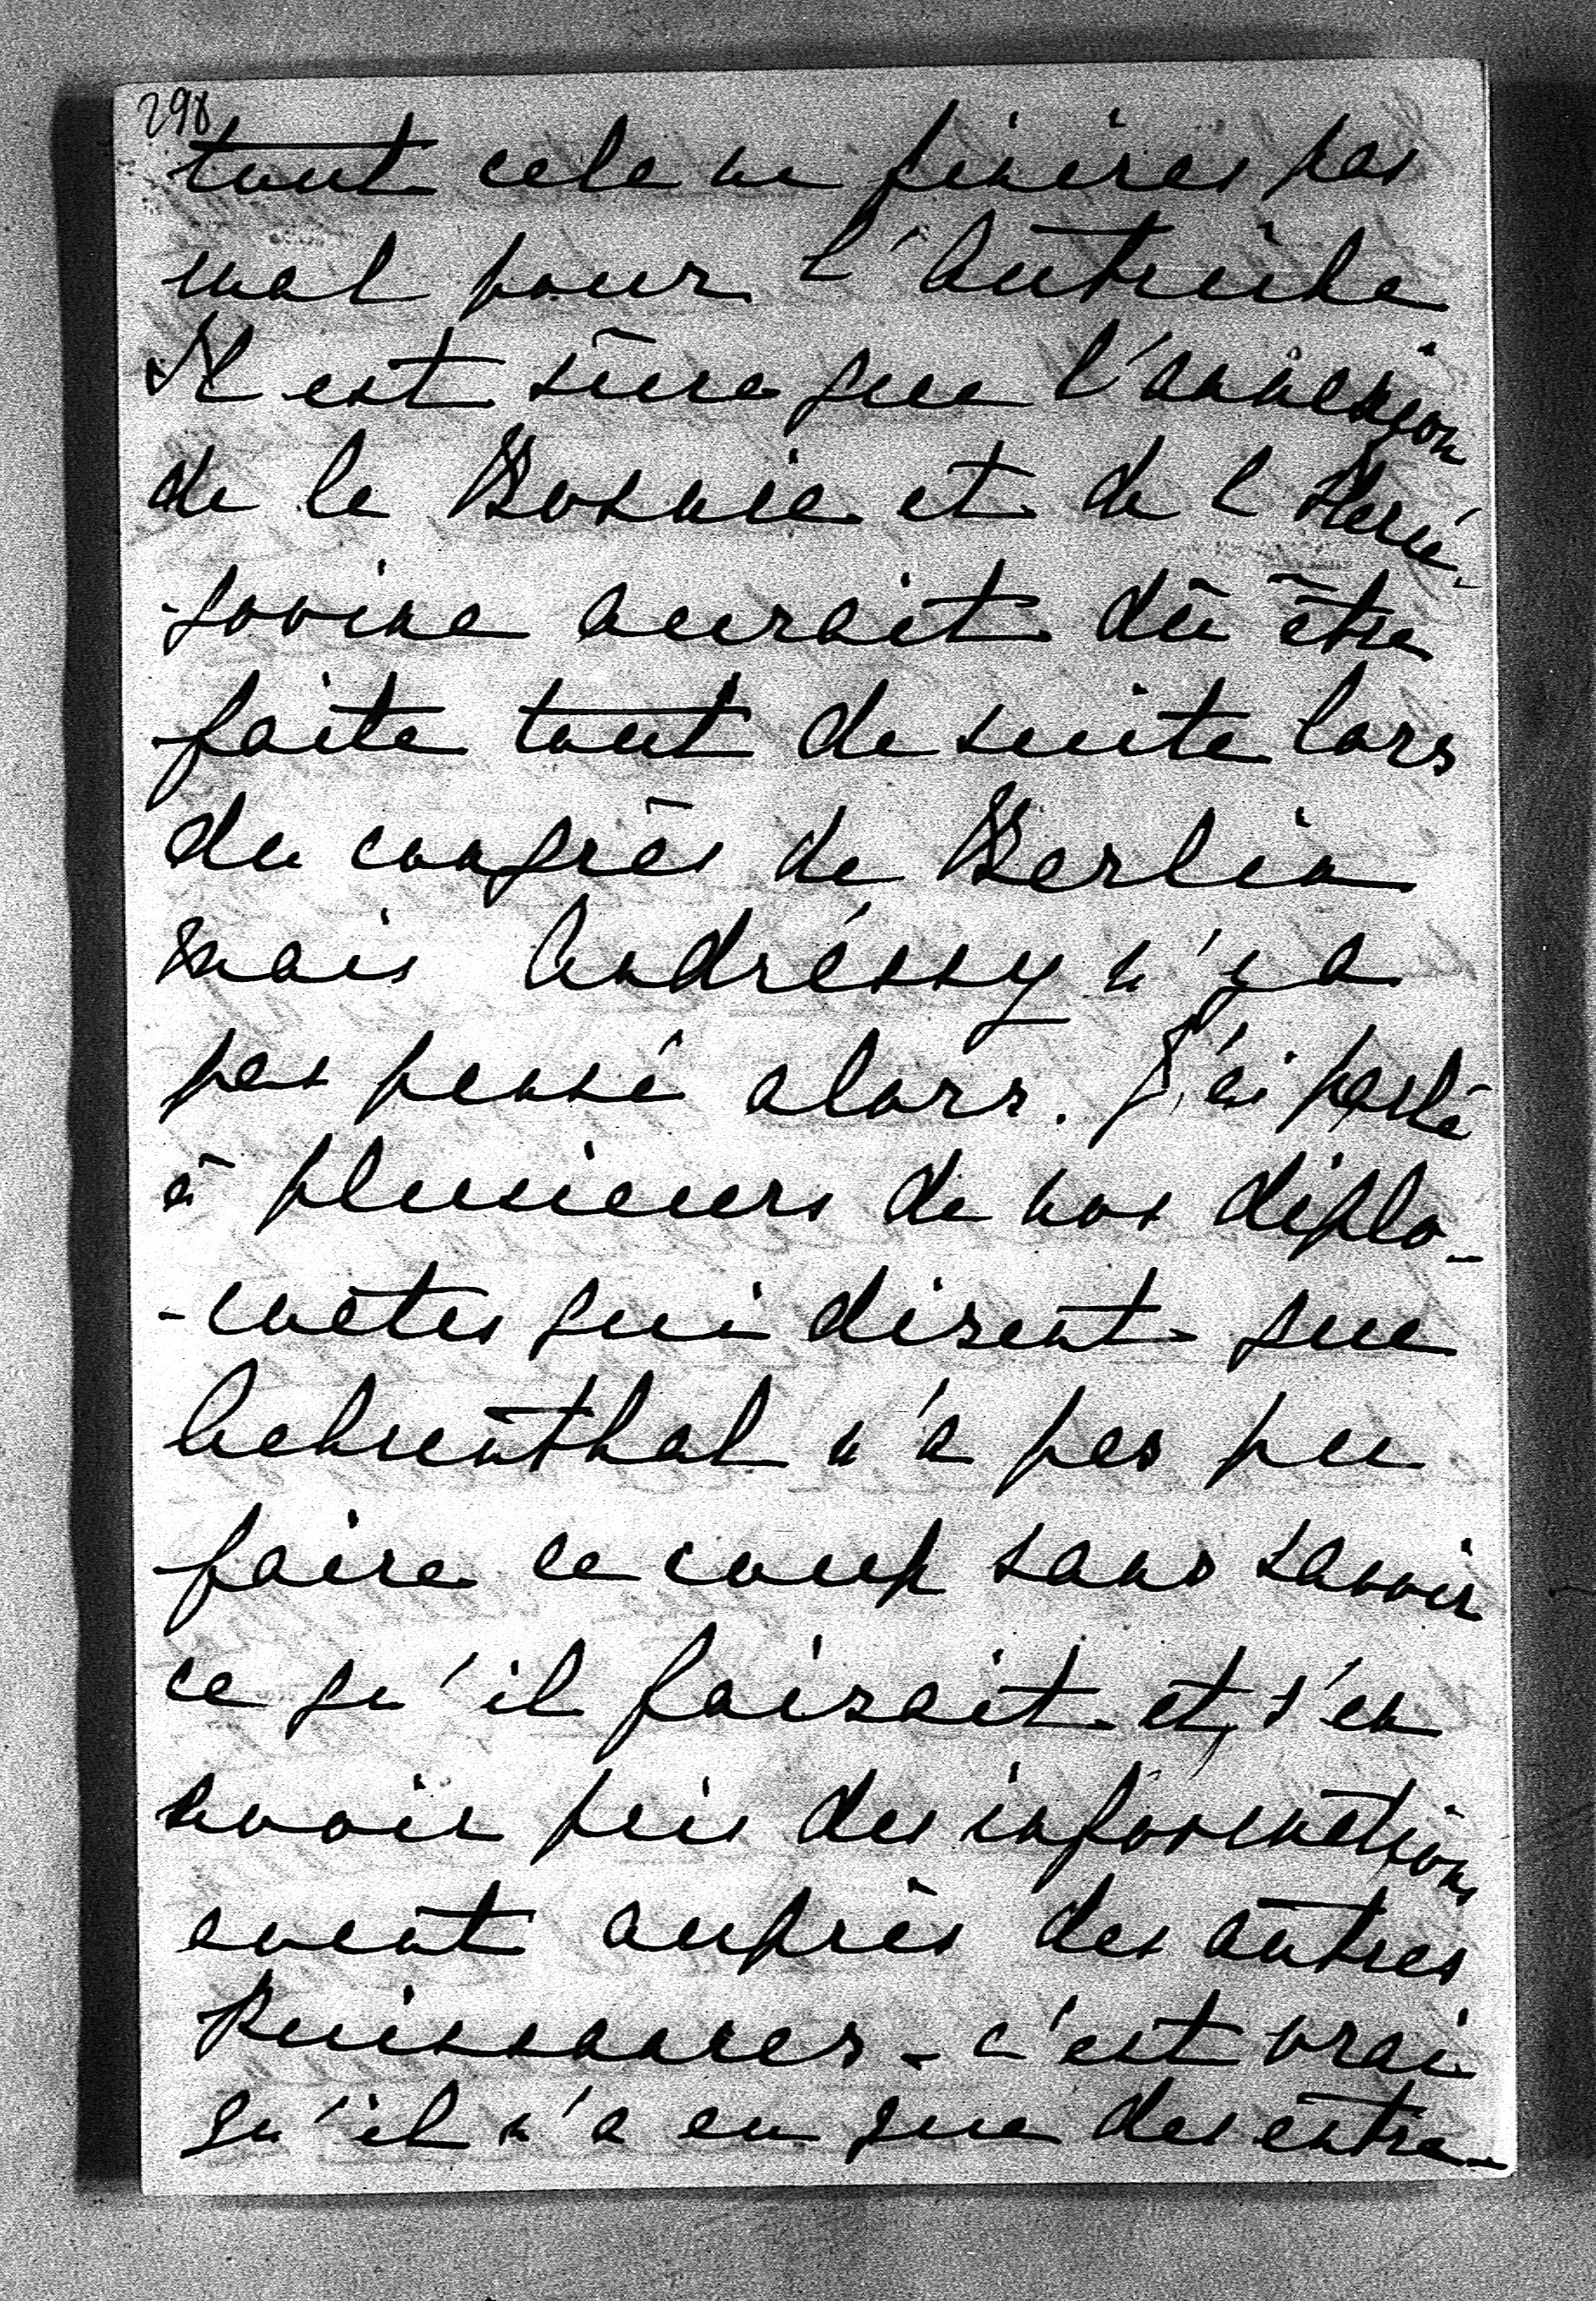 298
tout cela ne finiras pas
mal pour l'Autriche
Il est sûre que l'annexion
de la Bosnie et de l Herzé-
-govine aurait dû être
faite tout de suite lors
du congrès de Berlin
mais Andréssy n'y a
pas pensé alors. J'ai parlé
à plusieurs de nos diplo-
-mates qui disent que
Aehrenthal n'a pas pu
faire ce coup sans savoir
ce qu'il faisait et s'en
avoir pris des informations
avant auprès des autres
Puissances - c'est vrai
qu'il n'a eu que des entre-